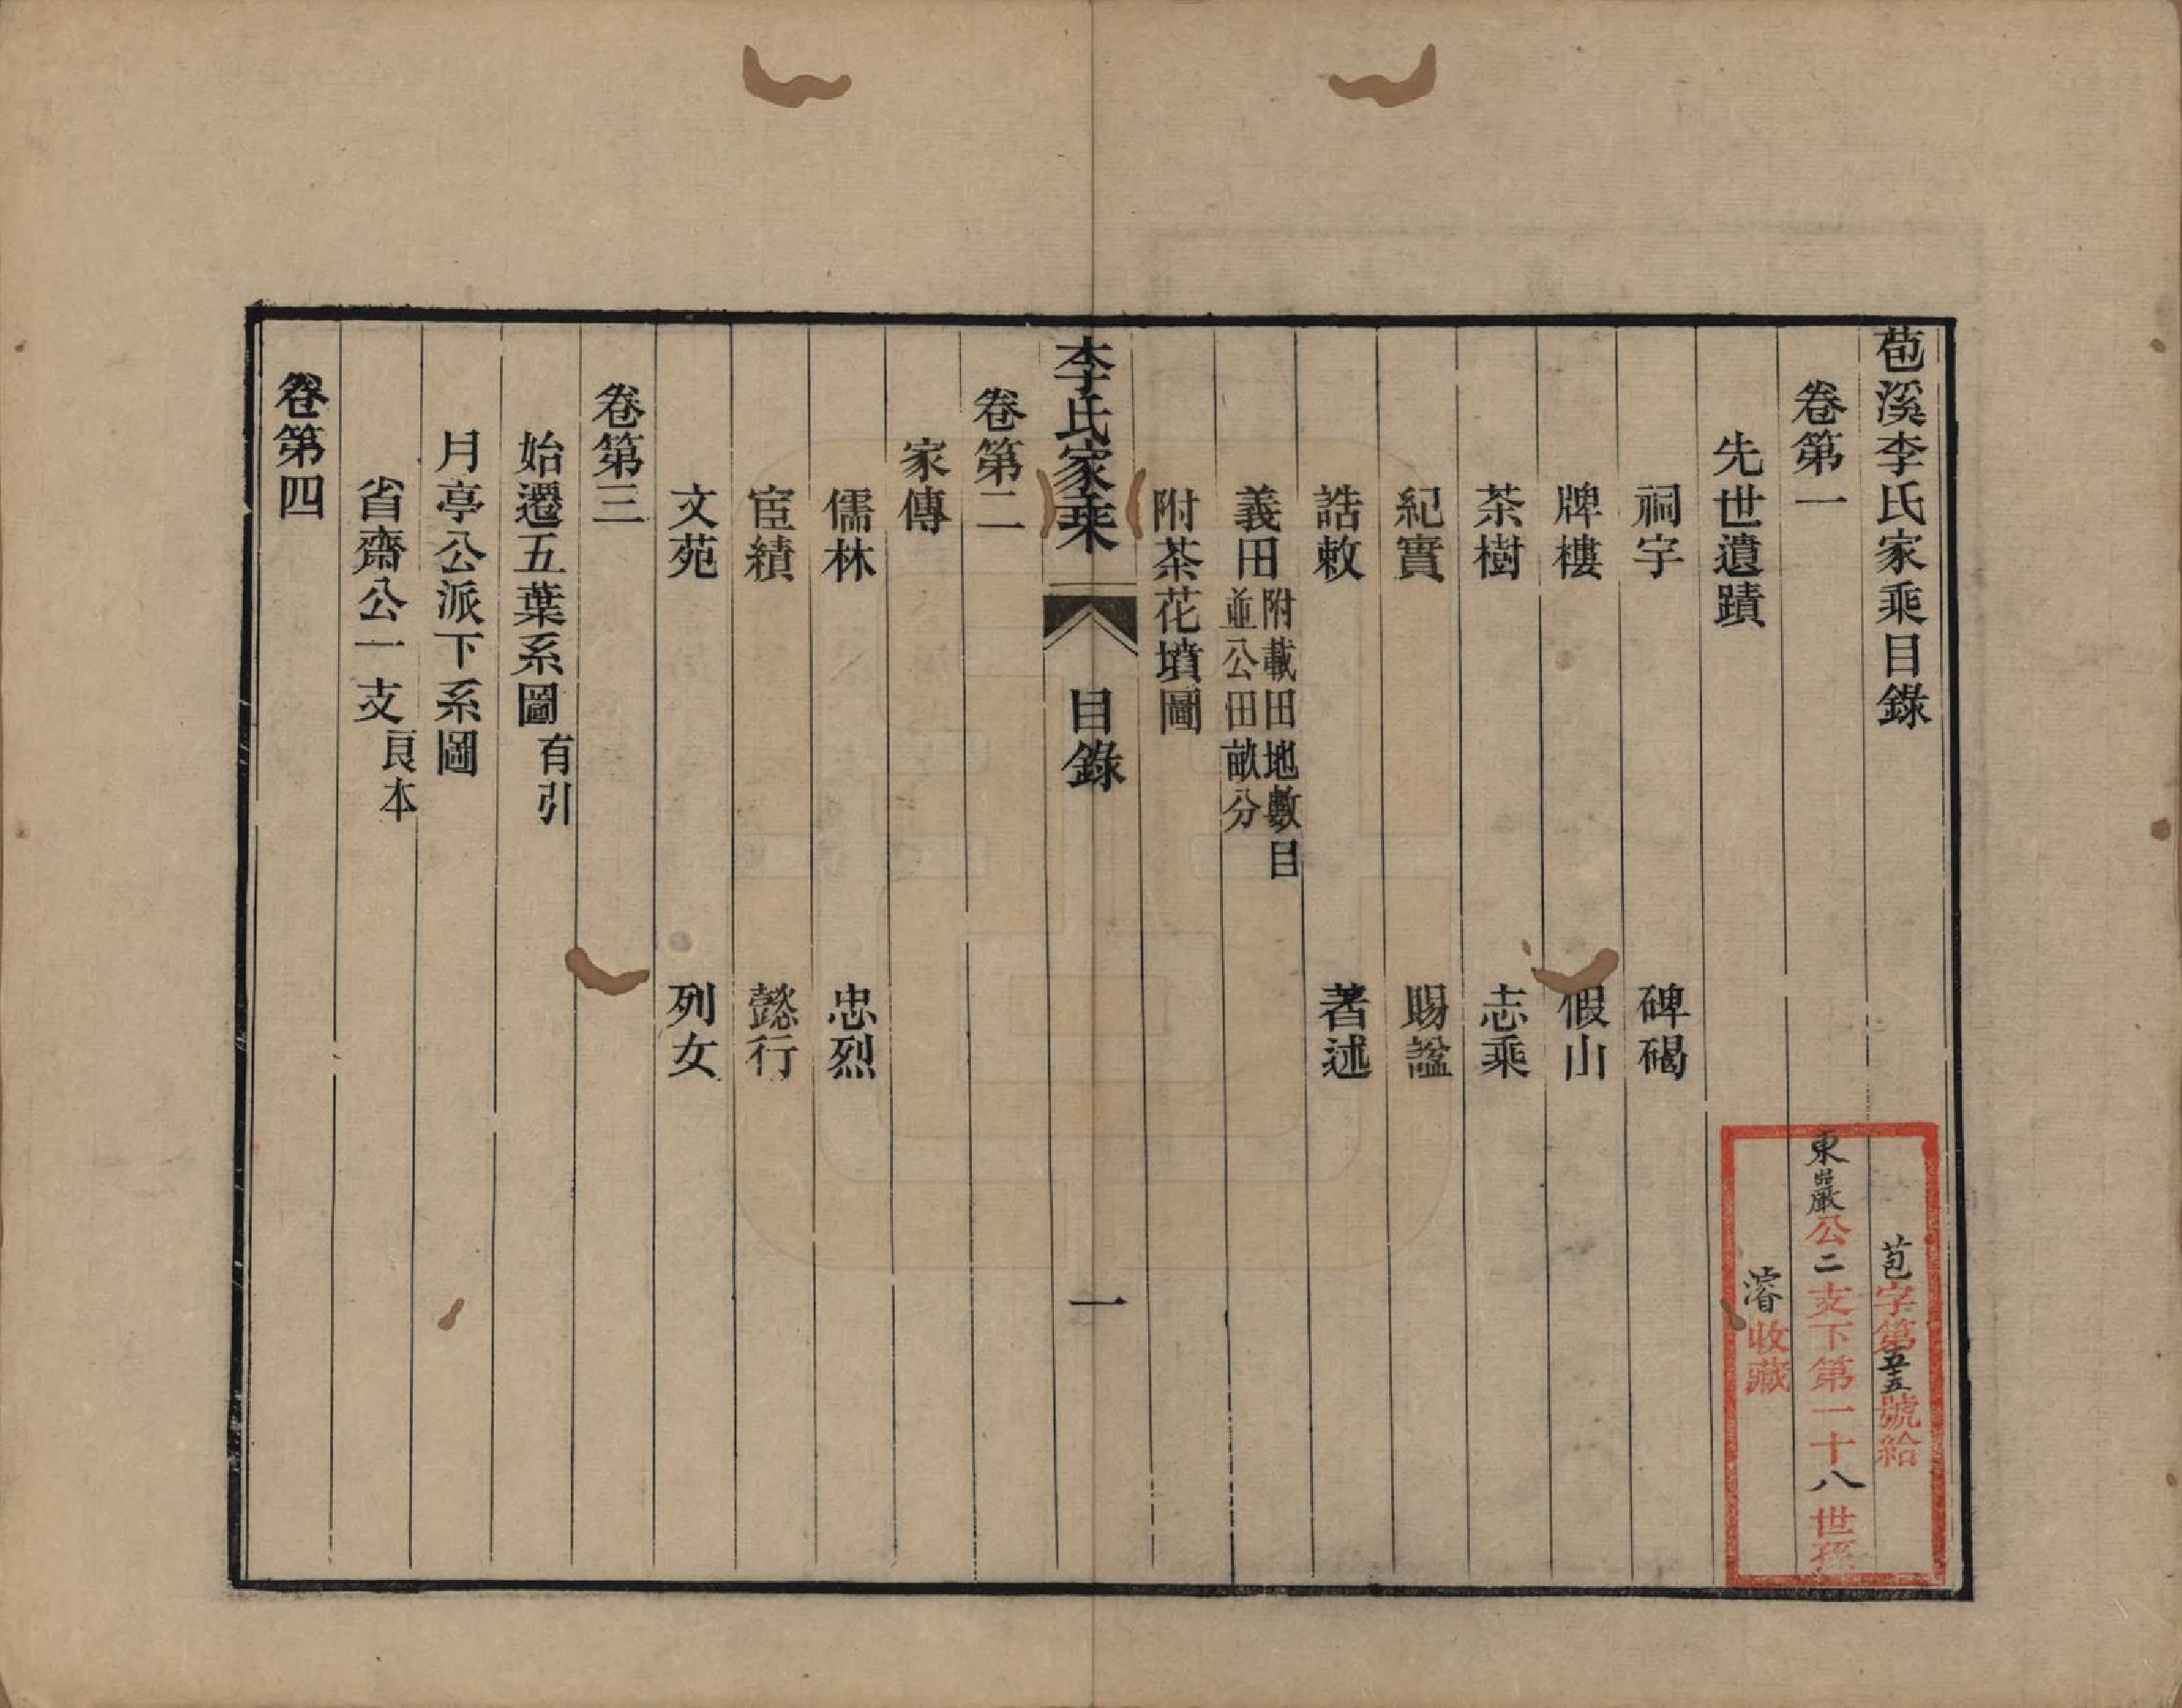 苞溪李氏家乘目錄
卷第一
先世遺蹟
祠宇 碑碣
牌樓 假山
茶樹 志乘
紀實 賜諡
誥敕 著述
義田 附載田地數目 並公田畝分
附茶花墳圖
李氏家乘 目錄 一
卷第二
家傳
儒林 忠烈
宦績 懿行
文苑 列女
卷第三
始遷五葉系圖 有引
月亭公派下系圖
省齋公一支 良本
卷第四
苞字第五十五號給
東巖公二支下第一十八世孫
濬收藏